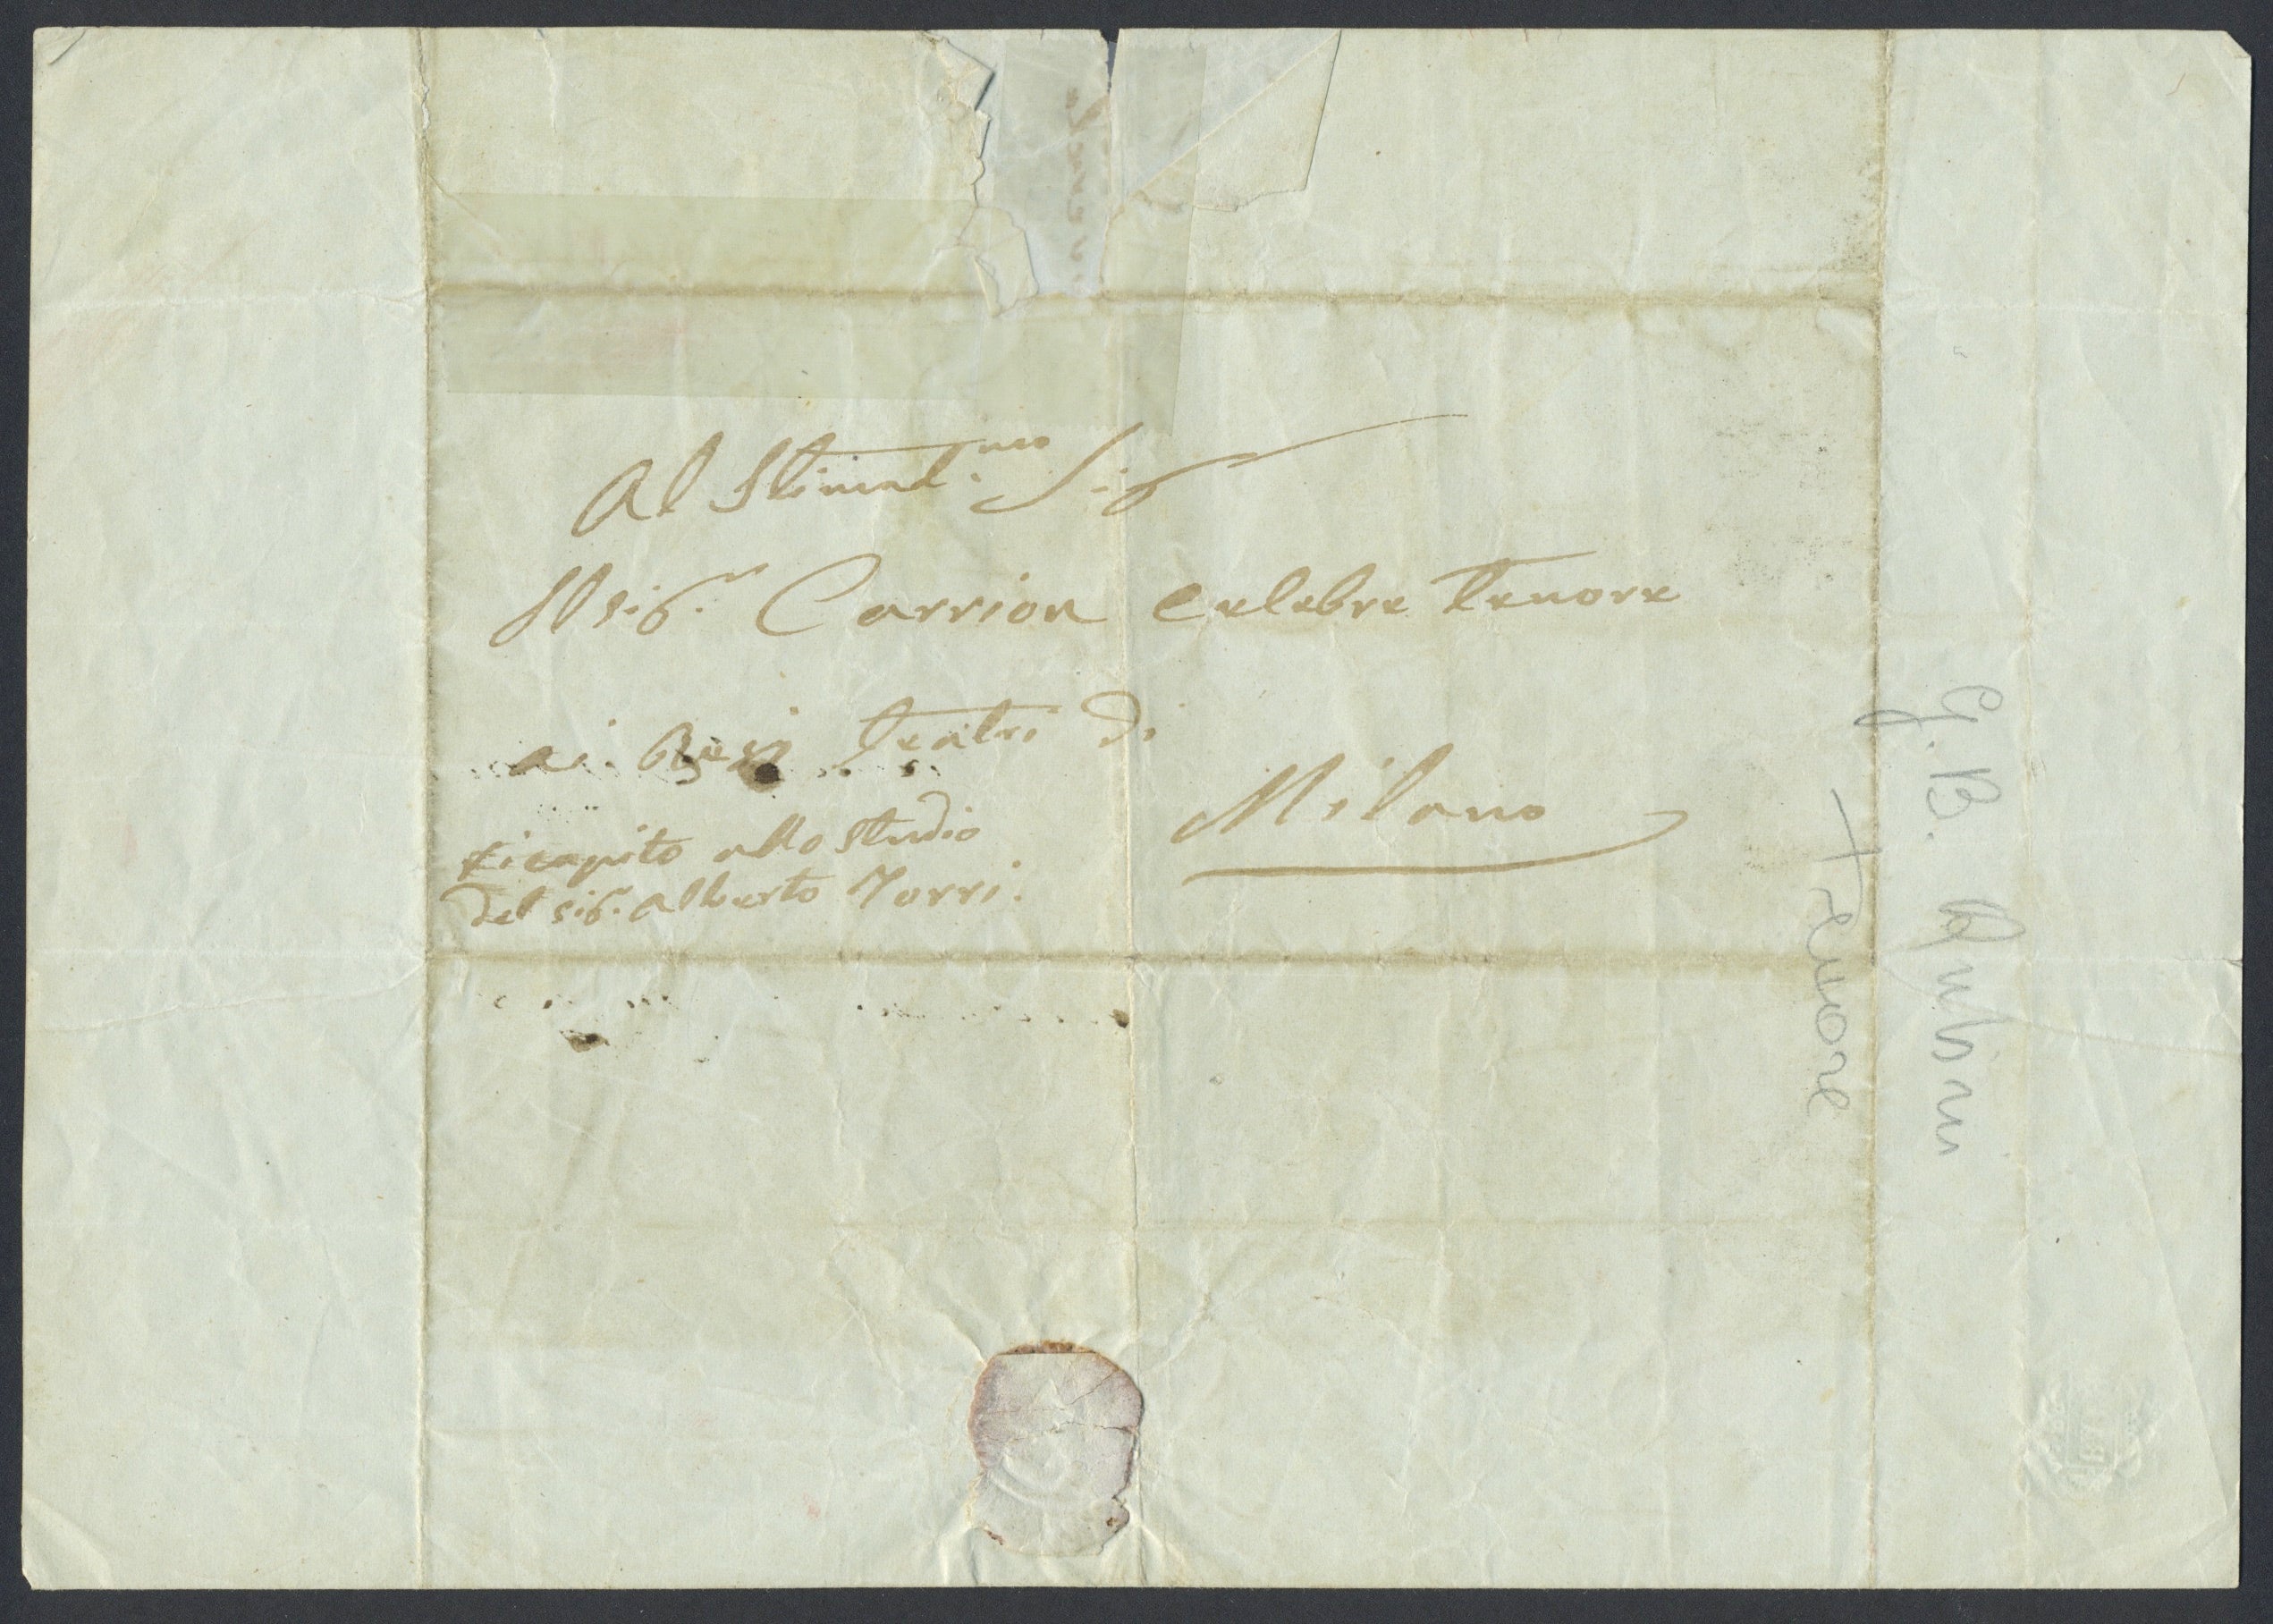 Al Stimat.mo Sig
Il sig.r Carrion Celebre Tenore
ai Regi Teatri di
Milano
ricapito allo Studio
del sig.r Alberto Torri.
G. B. Rubini
Tenore